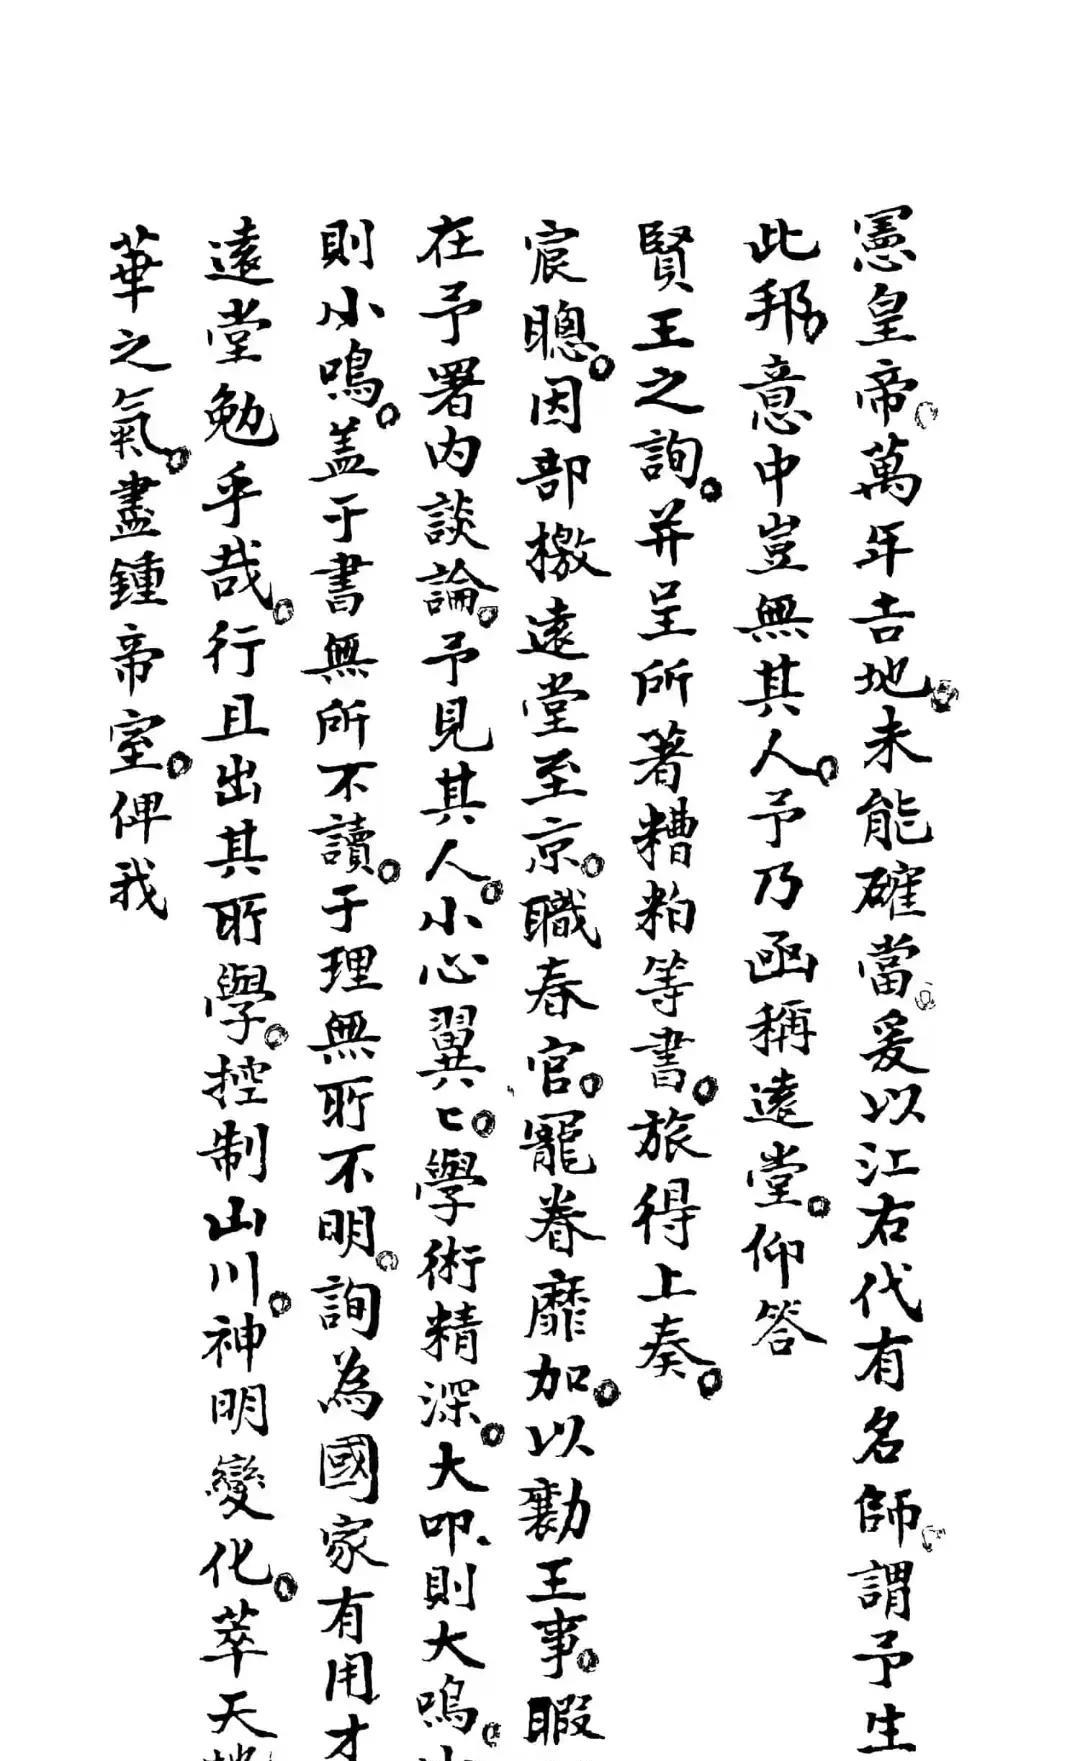 憲皇帝。萬年吉地。未能確當。爰以江右代有名師。謂予生
此邦。意中豈無其人。予乃函稱遠堂。仰答
賢王之詢。并呈所著糟粕等書。旅得上奏。
宸聰。因部檄遠堂至京。職春官。寵眷靡加。以勷王事。暇
在予署內談論。予見其人。小心翼〻。學術精深。大叩、則大鳴。
則小鳴。盖于書無所不讀。于理無所不明。詢為國家有用才
遠堂勉乎哉。行且出其所學。控制山川。神明變化。萃天地
華之氣。盡鍾帝室。俾我